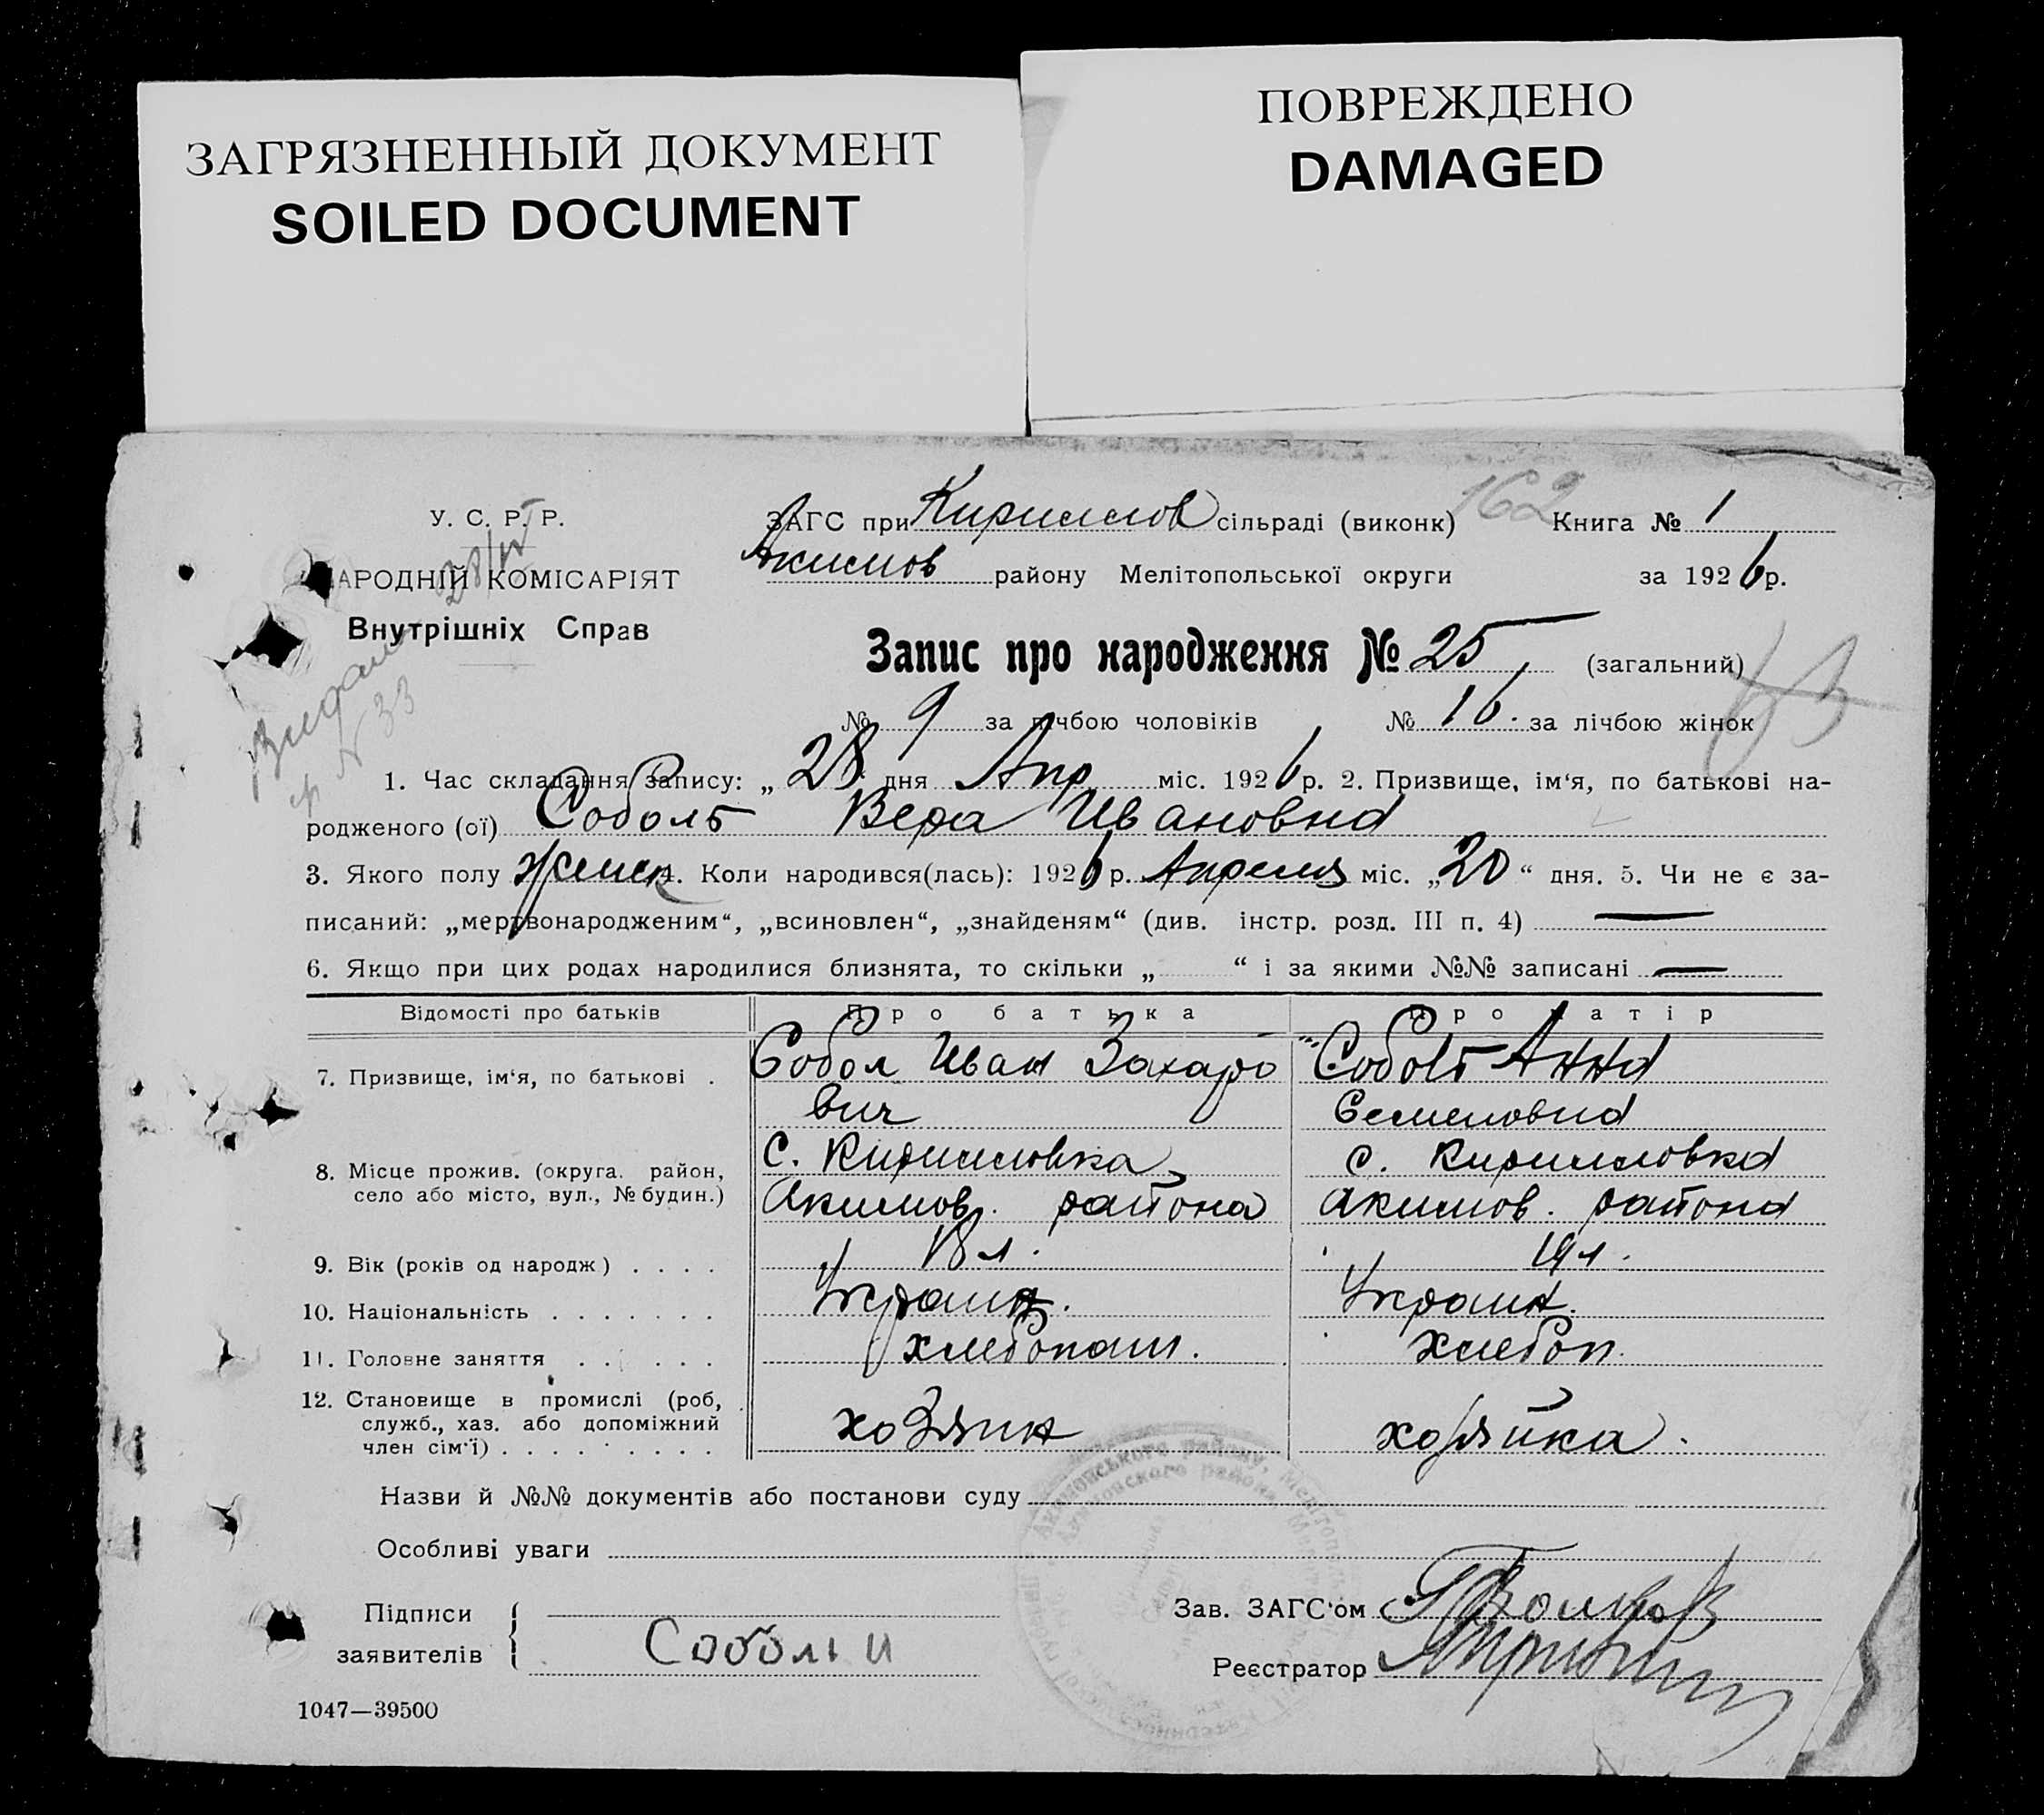 ЗАГРЯЗНЕННЫЙ ДОКУМЕНТ
SOILED DOCUMENT
ПОВРЕЖДЕНО
DAMAGED
162
У. С. Р. Р.
ЗАГС при Кириллов сільраді (виконк) Книга № 1
АРОДНІЙ КОМІСАРІЯТ
Акимов району Мелітопольської округи за 1926 р.
Внутрішніх Справ
Запис про народження № 25 (загальний)
№ 9 за лічбою чоловіків № 16. за лічбою жінок
1. Час складання запису: „28 дня Апр міс. 1926 р. 2. Призвище, ім‘я, по батькові на-
родженого (ої) Соболь Вера Ивановна
3. Якого полу женск 4. Коли народився(лась): 1926 р. Апреля міс. „20“ дня. 5. Чи не є за-
писаний: „мертвонародженим“, „всиновлен“, „знайденям“ (див. інстр. розд. III п. 4) —
6. Якщо при цих родах народилися близнята, то скільки „ “ і за якими №№ записані —
Відомості про батьків Про батька Про матір
7. Призвище, ім‘я, по батькові . Собол Иван Захаро Соболь Анна
вич Семеновна
8. Місце прожив. (округа. район, с. Кирилловка с. Кирилловка
село або місто, вул., № будин.) Акимов. района Акимов. района
9. Вік (років од народж) . . . . 18 л. 19 л.
10. Національність . . . . . . . Украин. Украин.
11. Головне заняття . . . . . . хлебопаш. хлебоп.
12. Становище в промислі (роб,
служб., хаз. або допоміжний хозяин хозяйка.
член сім‘ї) . . . . . . . . .
Назви й №№ документів або постанови суду
Особливі уваги
Підписи Зав. ЗАГС‘ом
заявителів Соболь И
Реєстратор
1047—39500